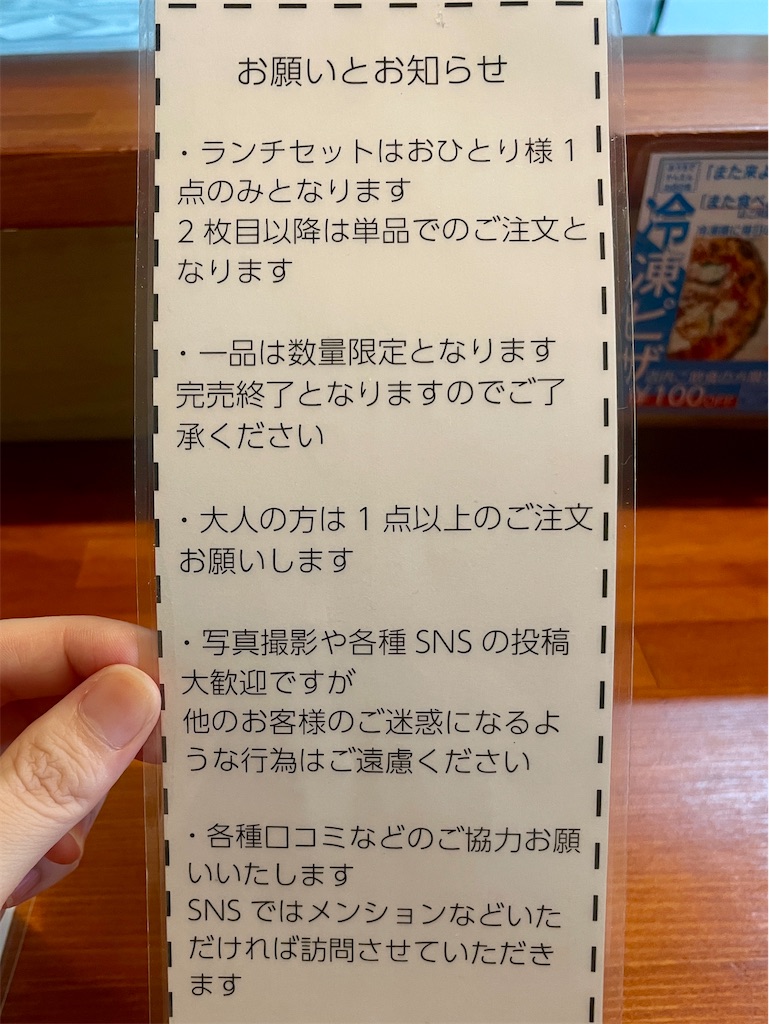 お願いとお知らせ
・ランチセットはおひとり様1
点のみとなります
2枚目以降は単品でのご注文と
なります
・一品は数量限定となります
完売終了となりますのでご了
承ください
・大人の方は1点以上のご注文
お願いします
・写真撮影や各種SNSの投稿
大歓迎ですが
他のお客様のご迷惑になるよ
うな行為はご遠慮ください
・各種口コミなどのご協力お願
いいたします
SNSではメンションなどいた
だければ訪問させていただき
ます
「また来よ
「また食べ
冷凍ピザ
100OFF